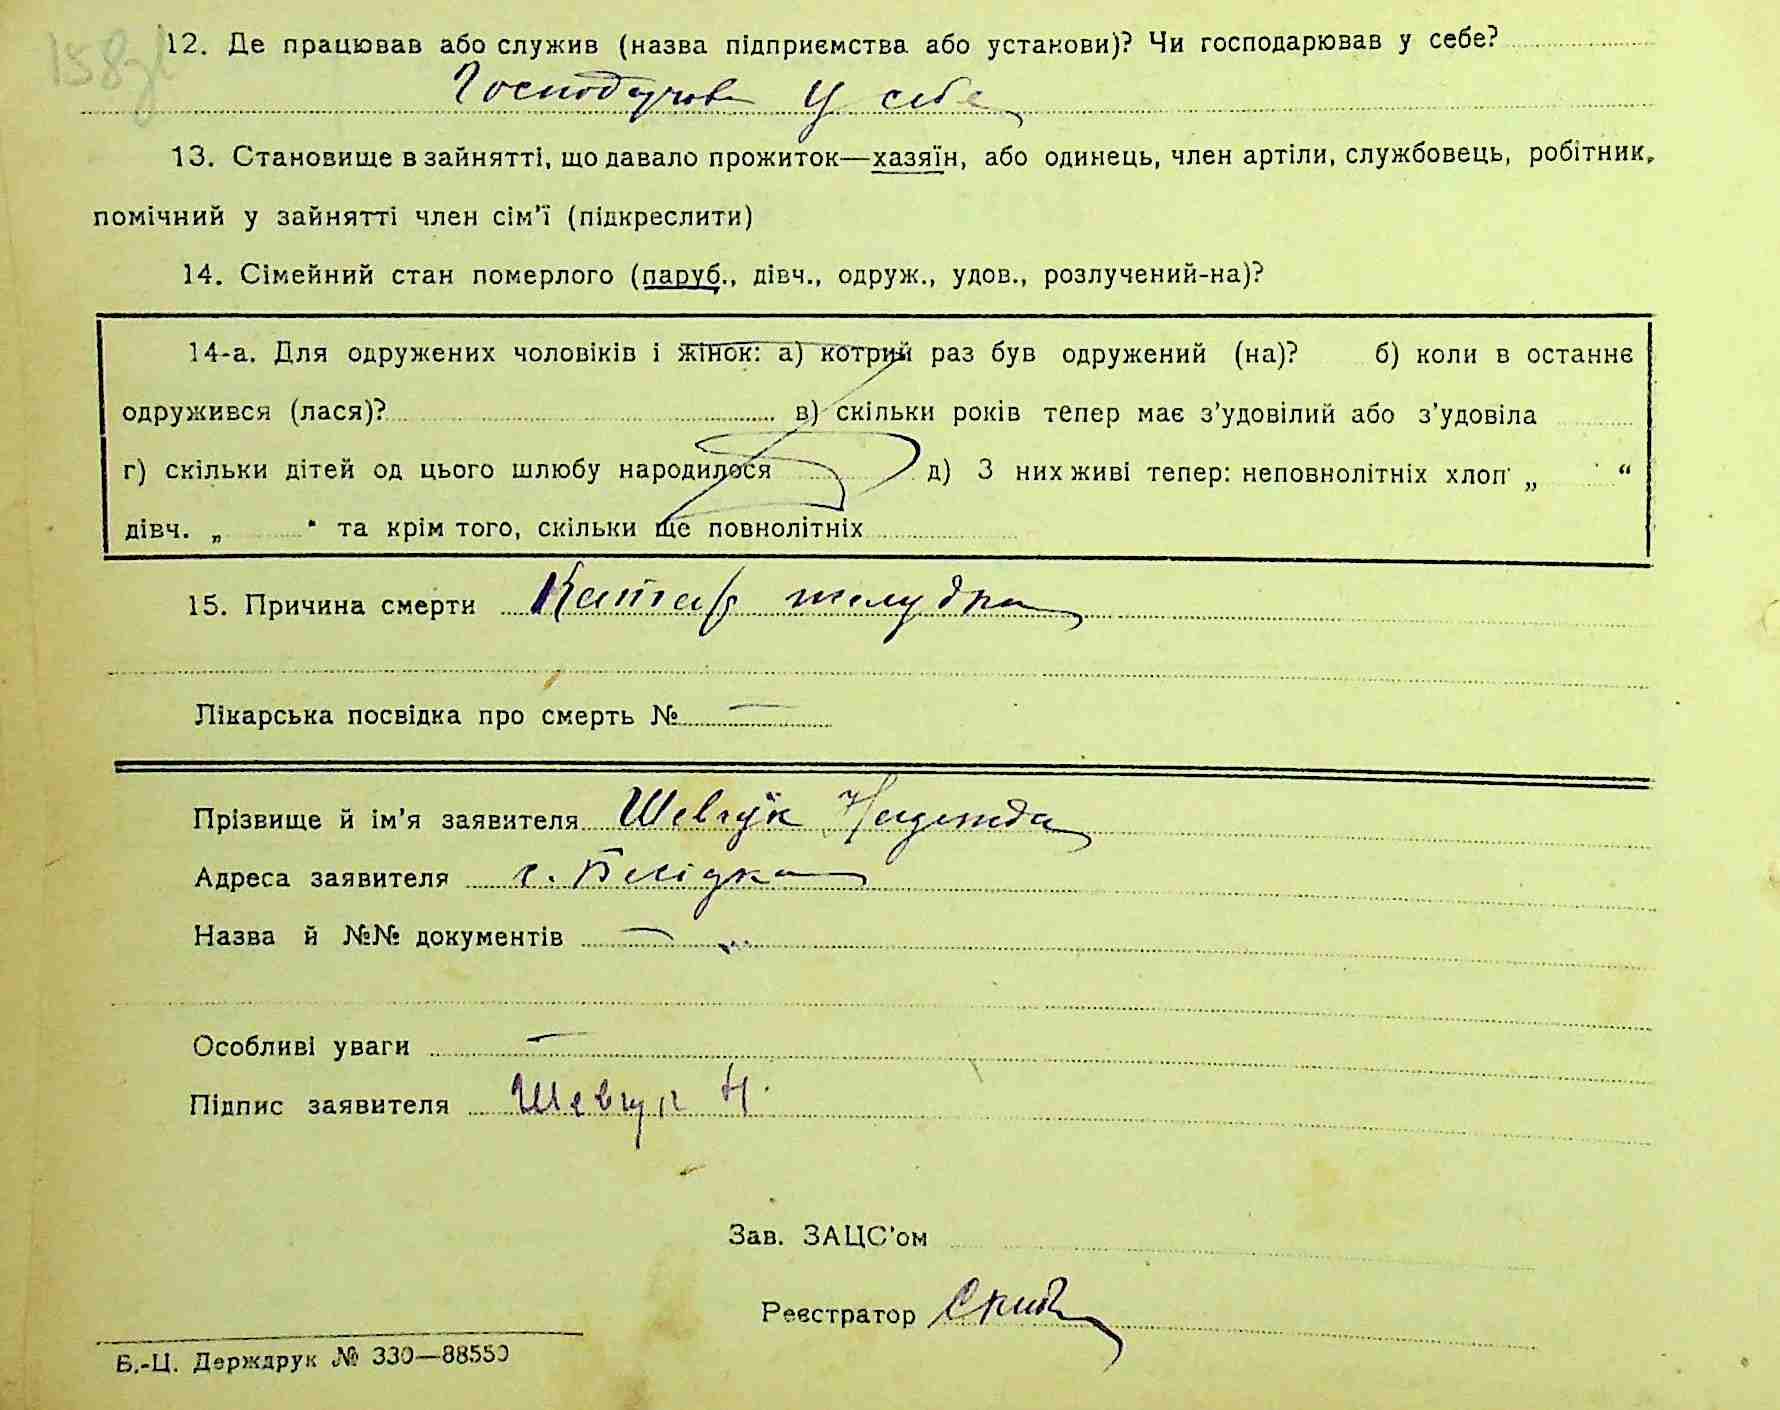 158
12. Де працював або служив (назва підприємства або установи)? Чи господарював у себе?
Господарював у себе
13. Становище в зайнятті, що давало прожиток—хазяїн, або одинець, член артіли, службовець, робітник,
помічний у зайнятті член сім'ї (підкреслити)
14. Сімейний стан померлого (паруб., дівч., одруж., удов., розлучений-на)?
14-а. Для одружених чоловіків і жінок: а) котрий раз був одружений (на)? б) коли в останнє
одружився (лася)? в) скільки років тепер має з'удовілий або з'удовіла
г) скільки дітей од цього шлюбу народилося д) З них живі тепер: неповнолітніх хлоп „ “
дівч. „ “ та крім того, скільки ще повнолітніх
15. Причина смерти Катар шлудка
Лікарська посвідка про смерть № —
Прізвище й ім'я заявителя Шевчук Надежда
Адреса заявителя с.
Назва й №№ документів —
Особливі уваги —
Підпис заявителя Шевчук Н.
Зав. ЗАЦС'ом
Реєстратор
Б.-Ц. Держдрук № 330—88550